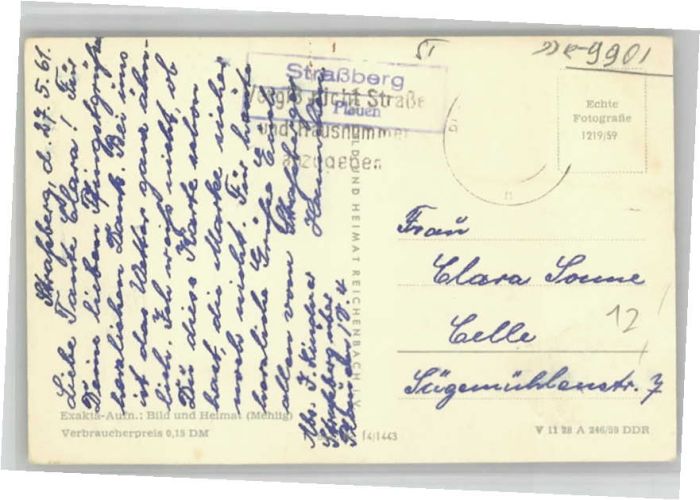 Straßberg, d. 27.5.61.
Liebe Tante Clara! Für
Deine lieben Pfingstgrüße
herzlichen Dank. Bei uns
ist das Wetter ganz ähn-
lich. Ich weiß nicht, ob
Du diese Karte schon
hast, die Marke sicher
noch nicht. Für heute
herzliche Grüße Euch
allen von
Abs. J.
Straßberg über
Plauen
Straßberg
Plauen
Vergiß nicht Straße
und Hausnummer
anzugeben
BILD UND HEIMAT REICHENBACH I.V.
9901
Echte
Fotografie
1219/59
Frau
Clara Sonne
Celle
12
Sägemühlenstr. 7
Exakta-Aufn.: Bild und Heimat (Mehlig)
Verbraucherpreis 0,15 DM
14/1443
V 11 28 A 246/59 DDR